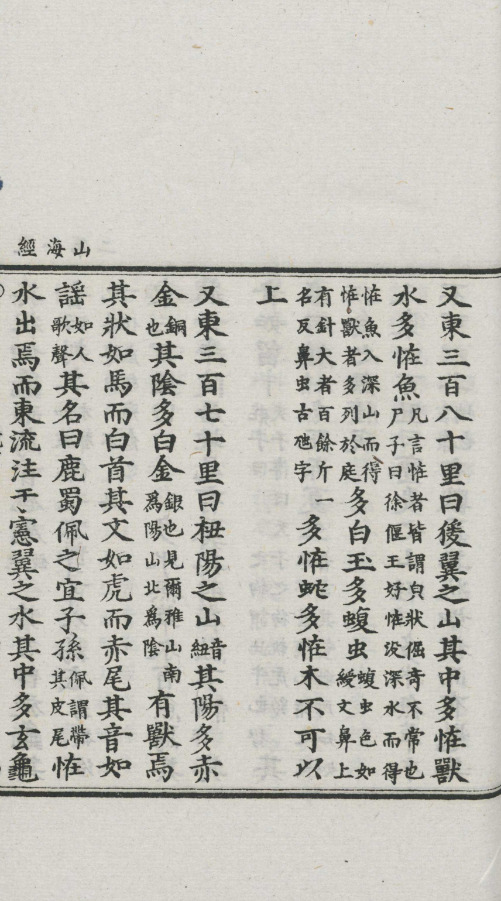 山海經
又東三百八十里曰猨翼之山其中多恠獸
水多恠魚凡言恠者皆謂皃狀倔奇不常也尸子曰徐偃王好恠没深水而得
恠魚入深山而得恠獸者多列於庭多白玉多蝮虫蝮虫色如綬文鼻上
有針大者百餘斤一名反鼻虫古虺字多恠蛇多恠木不可以
上
又東三百七十里曰杻陽之山音紐其陽多赤
金銅也其陰多白金銀也見爾雅山南爲陽山北爲陰有獸焉
其狀如馬而白首其文如虎而赤尾其音如
謡如人歌聲其名曰鹿蜀佩之宜子孫佩謂帶其皮尾恠
水出焉而東流注于憲翼之水其中多玄龜